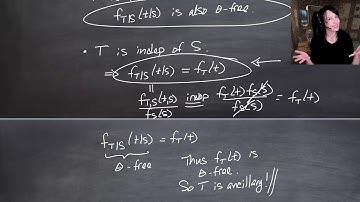 f_{T|S}(t|s) is also θ-free.
• T is indep of S.
⇒ f_{T|S}(t|s) = f_T(t)
|| f_{T,S}(t,s)/f_S(s) indep = f_T(t) f_S(s)/f_S(s) = f_T(t)
f_{T|S}(t|s) = f_T(t)
θ-free
Thus f_T(t) is
θ-free.
So T is ancillary! //